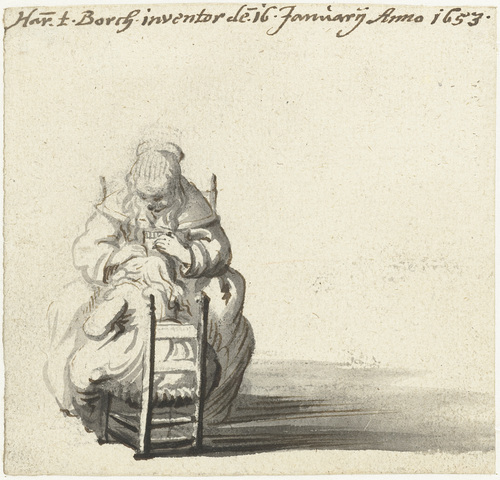 Har̄. t. Borch. inventor dē. 16. Januarÿ Anno 1653.